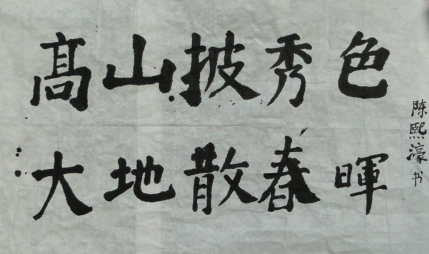 髙山披秀色
大地散春暉
陈熙濠书